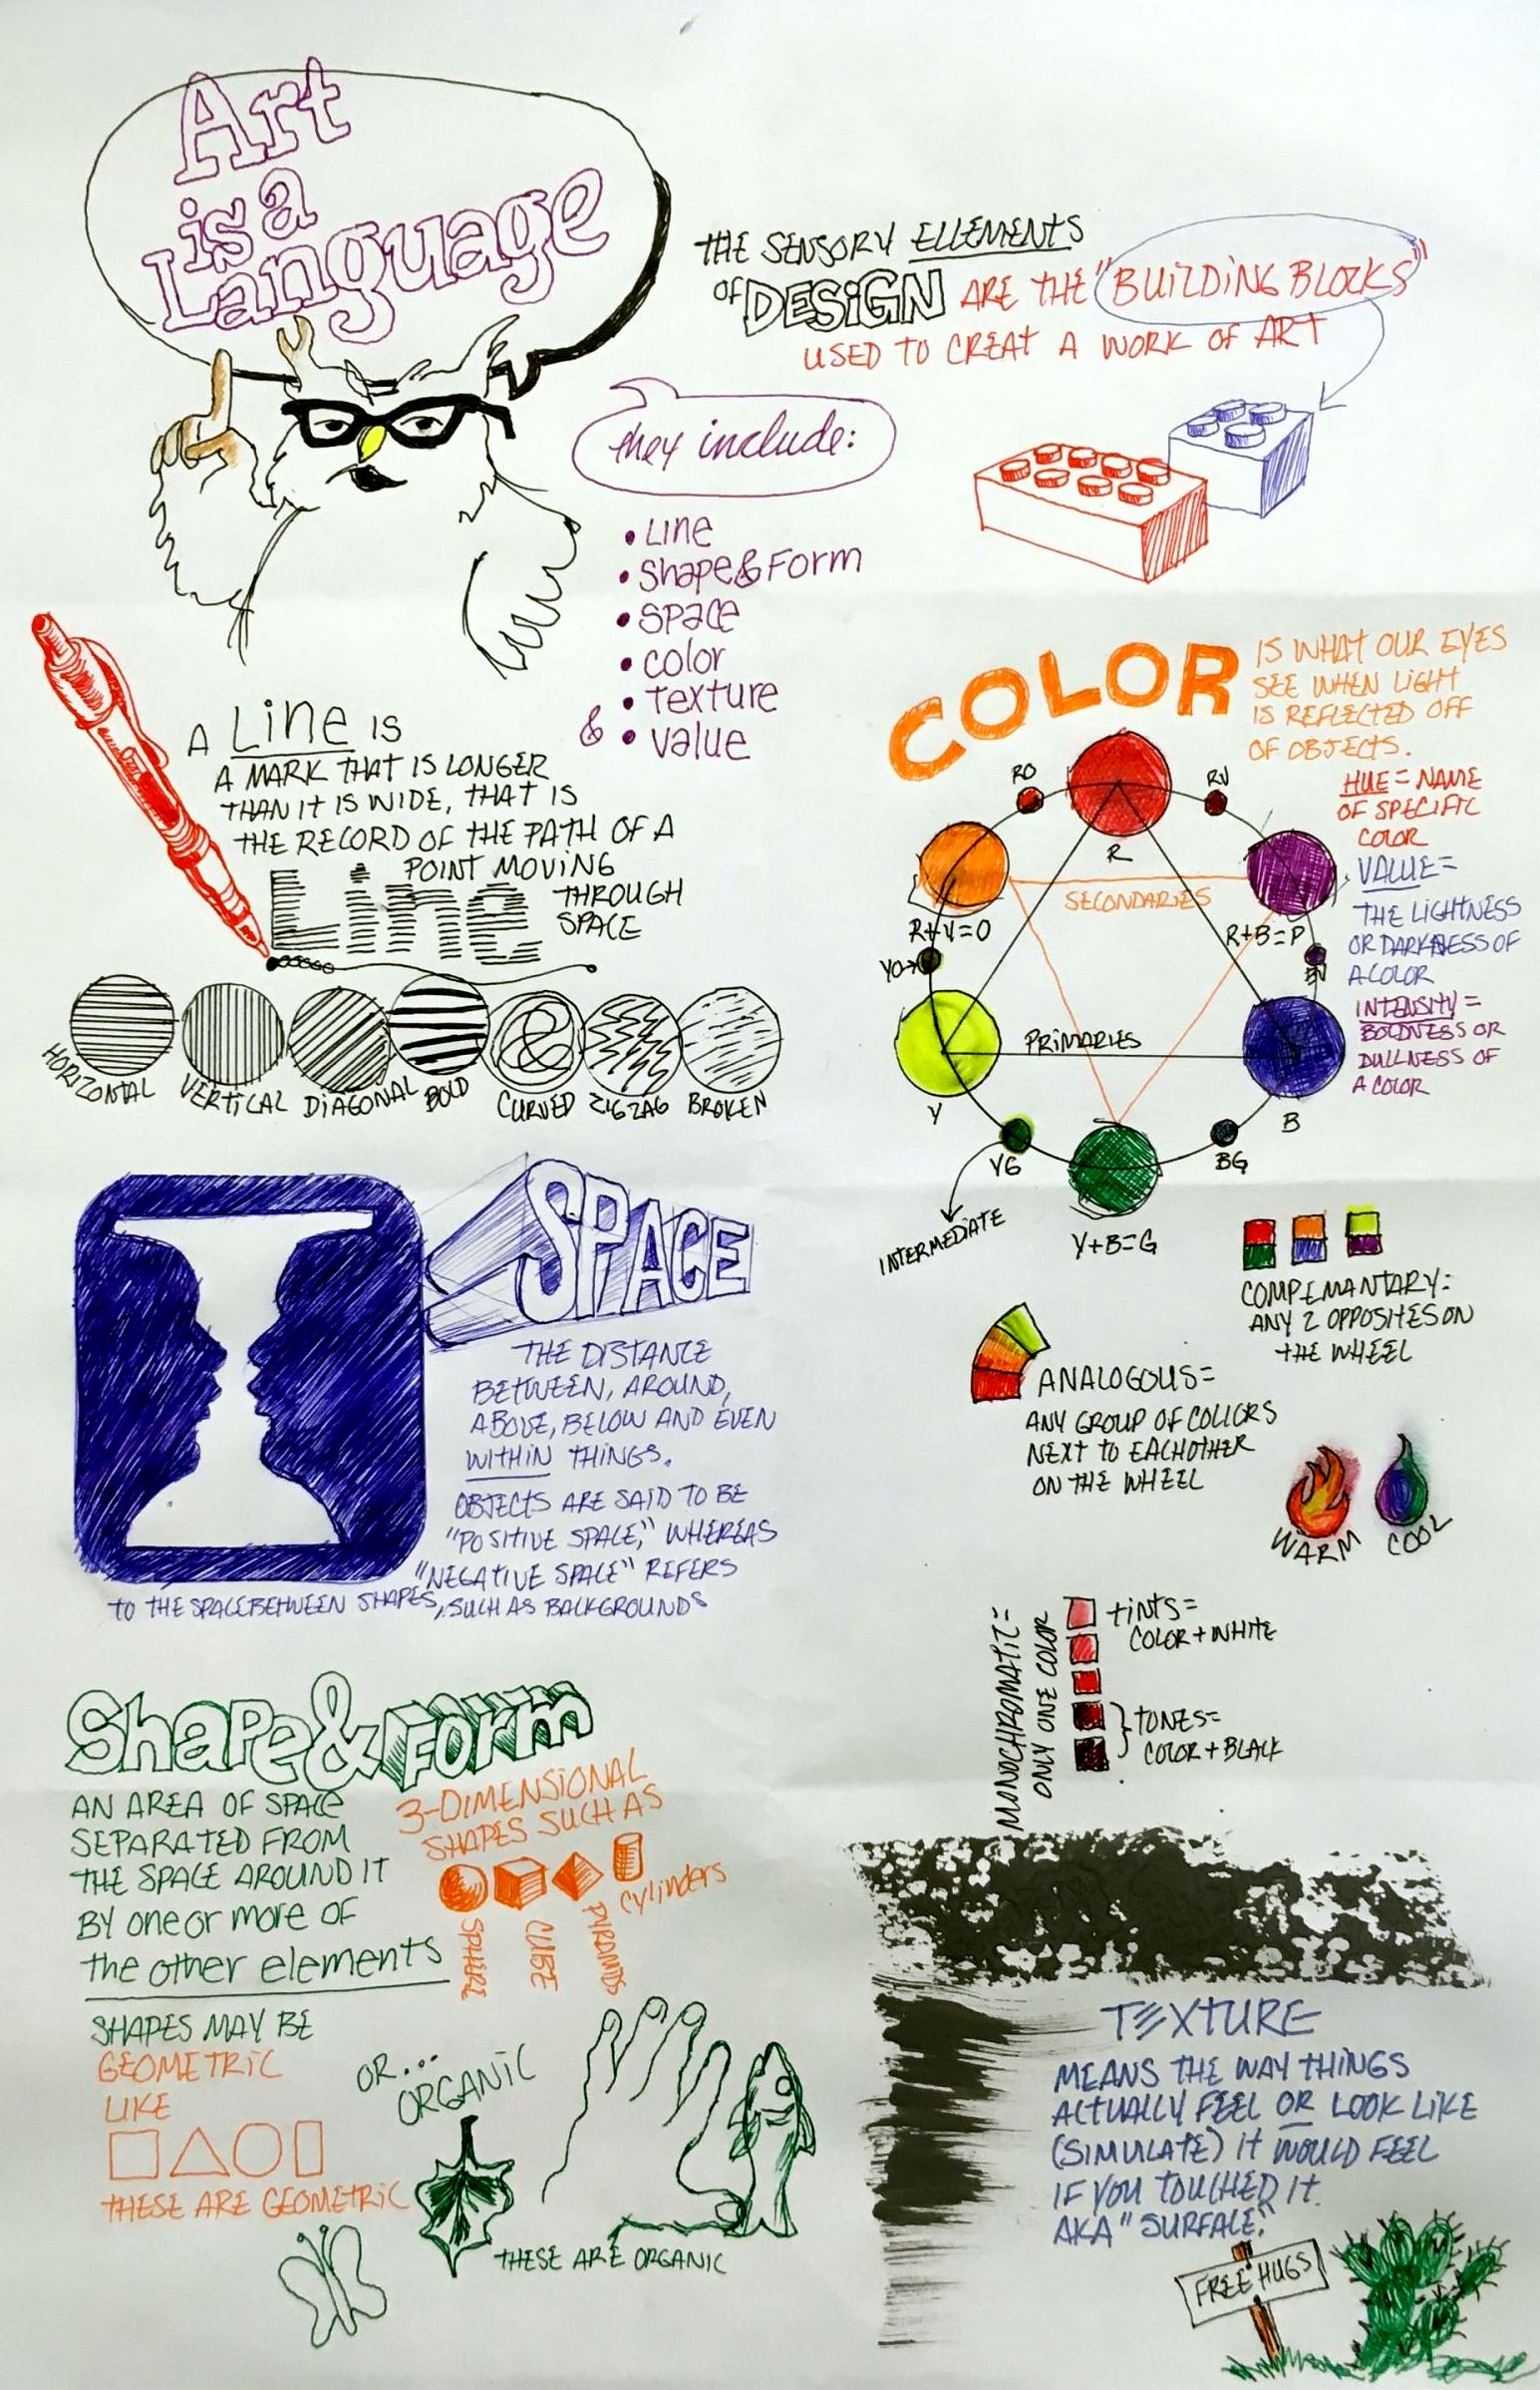 Art
is a
Language
THE SENSORY ELLEMENTS
OF DESIGN ARE THE "BUILDING BLOCKS"
USED TO CREAT A WORK OF ART
they include:
• Line
• Shape & Form
• space
• color
• Texture
& • value
A Line IS
A MARK THAT IS LONGER
THAN IT IS WIDE, THAT IS
THE RECORD OF THE PATH OF A
POINT MOVING
Line THROUGH
SPACE
HORIZONTAL VERTICAL DIAGONAL BOLD CURVED ZIGZAG BROKEN
COLOR IS WHAT OUR EYES
SEE WHEN LIGHT
IS REFLECTED OFF
OF OBJECTS.
HUE = NAME
OF SPECIFIC
COLOR
VALUE =
THE LIGHTNESS
OR DARKNESS OF
A COLOR
INTENSITY =
BOLDNESS OR
DULLNESS OF
A COLOR
RO RV
R
SECONDARIES
R+Y=O R+B=P
YO BV
PRIMARIES
Y B
YG BG
INTERMEDIATE
Y+B=G
COMPEMANTARY:
ANY 2 OPPOSITES ON
THE WHEEL
ANALOGOUS =
ANY GROUP OF COLLORS
NEXT TO EACHOTHER
ON THE WHEEL
WARM COOL
MONOCHROMATIC =
ONLY ONE COLOR
TINTS =
COLOR + WHITE
TONES =
COLOR + BLACK
SPACE
THE DISTANCE
BETWEEN, AROUND,
ABOVE, BELOW AND EVEN
WITHIN THINGS.
OBJECTS ARE SAID TO BE
"POSITIVE SPACE," WHEREAS
"NEGATIVE SPACE" REFERS
TO THE SPACE BETWEEN SHAPES, SUCH AS BACKGROUNDS
Shape & Form
AN AREA OF SPACE
SEPARATED FROM
THE SPACE AROUND IT
BY one or more of
the other elements
3-DIMENSIONAL
SHAPES SUCH AS
SPHERE CUBE PYRAMIDS cylinders
SHAPES MAY BE
GEOMETRIC
LIKE
THESE ARE GEOMETRIC
OR...
ORGANIC
THESE ARE ORGANIC
TEXTURE
MEANS THE WAY THINGS
ACTUALLY FEEL OR LOOK LIKE
(SIMULATE) IT WOULD FEEL
IF YOU TOUCHED IT.
AKA "SURFACE."
FREE HUGS